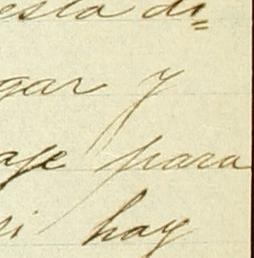 esta di=
gar y
aje para
si hay